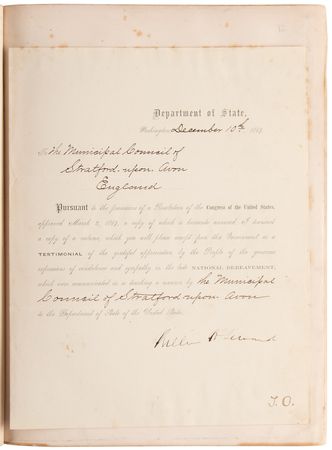 Department of State,
Washington, December 10th, 1867.
To the Municipal Council of
Stratford-upon-Avon
England
Pursuant to the provisions of a Resolution of the Congress of the United States,
approved March 2, 1867, a copy of which is hereunto annexed, I transmit
a copy of a volume, which you will please accept from this Government as a
TESTIMONIAL of the grateful appreciation by the People of the generous
expressions of condolence and sympathy in the late NATIONAL BEREAVEMENT,
which were communicated in so touching a manner by the Municipal
Council of Stratford-upon-Avon
to the Department of State of the United States.